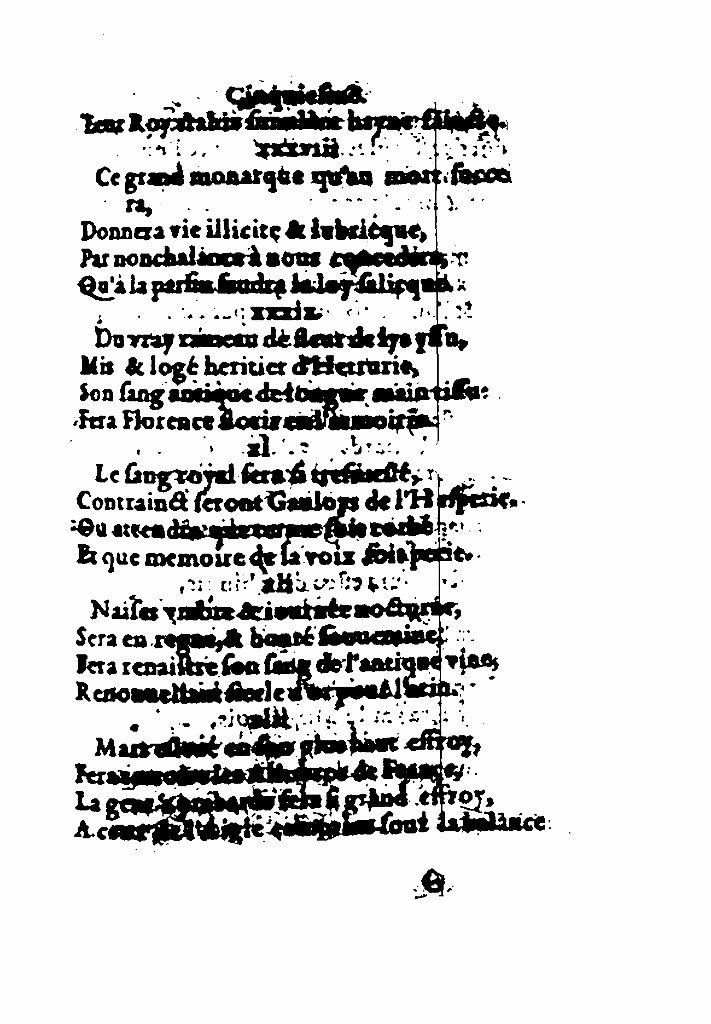 Cinquiesme.
Leur Roy hayne
xxxviii
Ce grand monarque qu'au mort succe
ra,
Donnera vie illicite & lubricque,
Par nonchalance à nous concedera,
Qu'à la parfin faudra la loy salicque.
xxxix
Du vray rameau de fleur de lys yssu,
Mis & logé heritier d'Hetrurie,
Son sang antique de longue main tissu:
Fera Florence florir en l'armoirie.
xl
Le sang royal sera si tresmeslé,
Contrainct seront Gauloys de l'Hesperie.
On attendra que terme soit
Et que memoire de sa voix soit perie.
xli
Naises vmbre & iournée nocturne,
Sera en regne, & bonté souueraine,
Fera renaistre son sang de l'antique vrne,
Renouuellant siecle d'or pour l'ærin.
xlii
Mars esleué en son plus haut effroy,
Fera de France,
La gent Lombarde fera si grand effroy,
A ceux de l'Aigle comprins soubz la balance
G